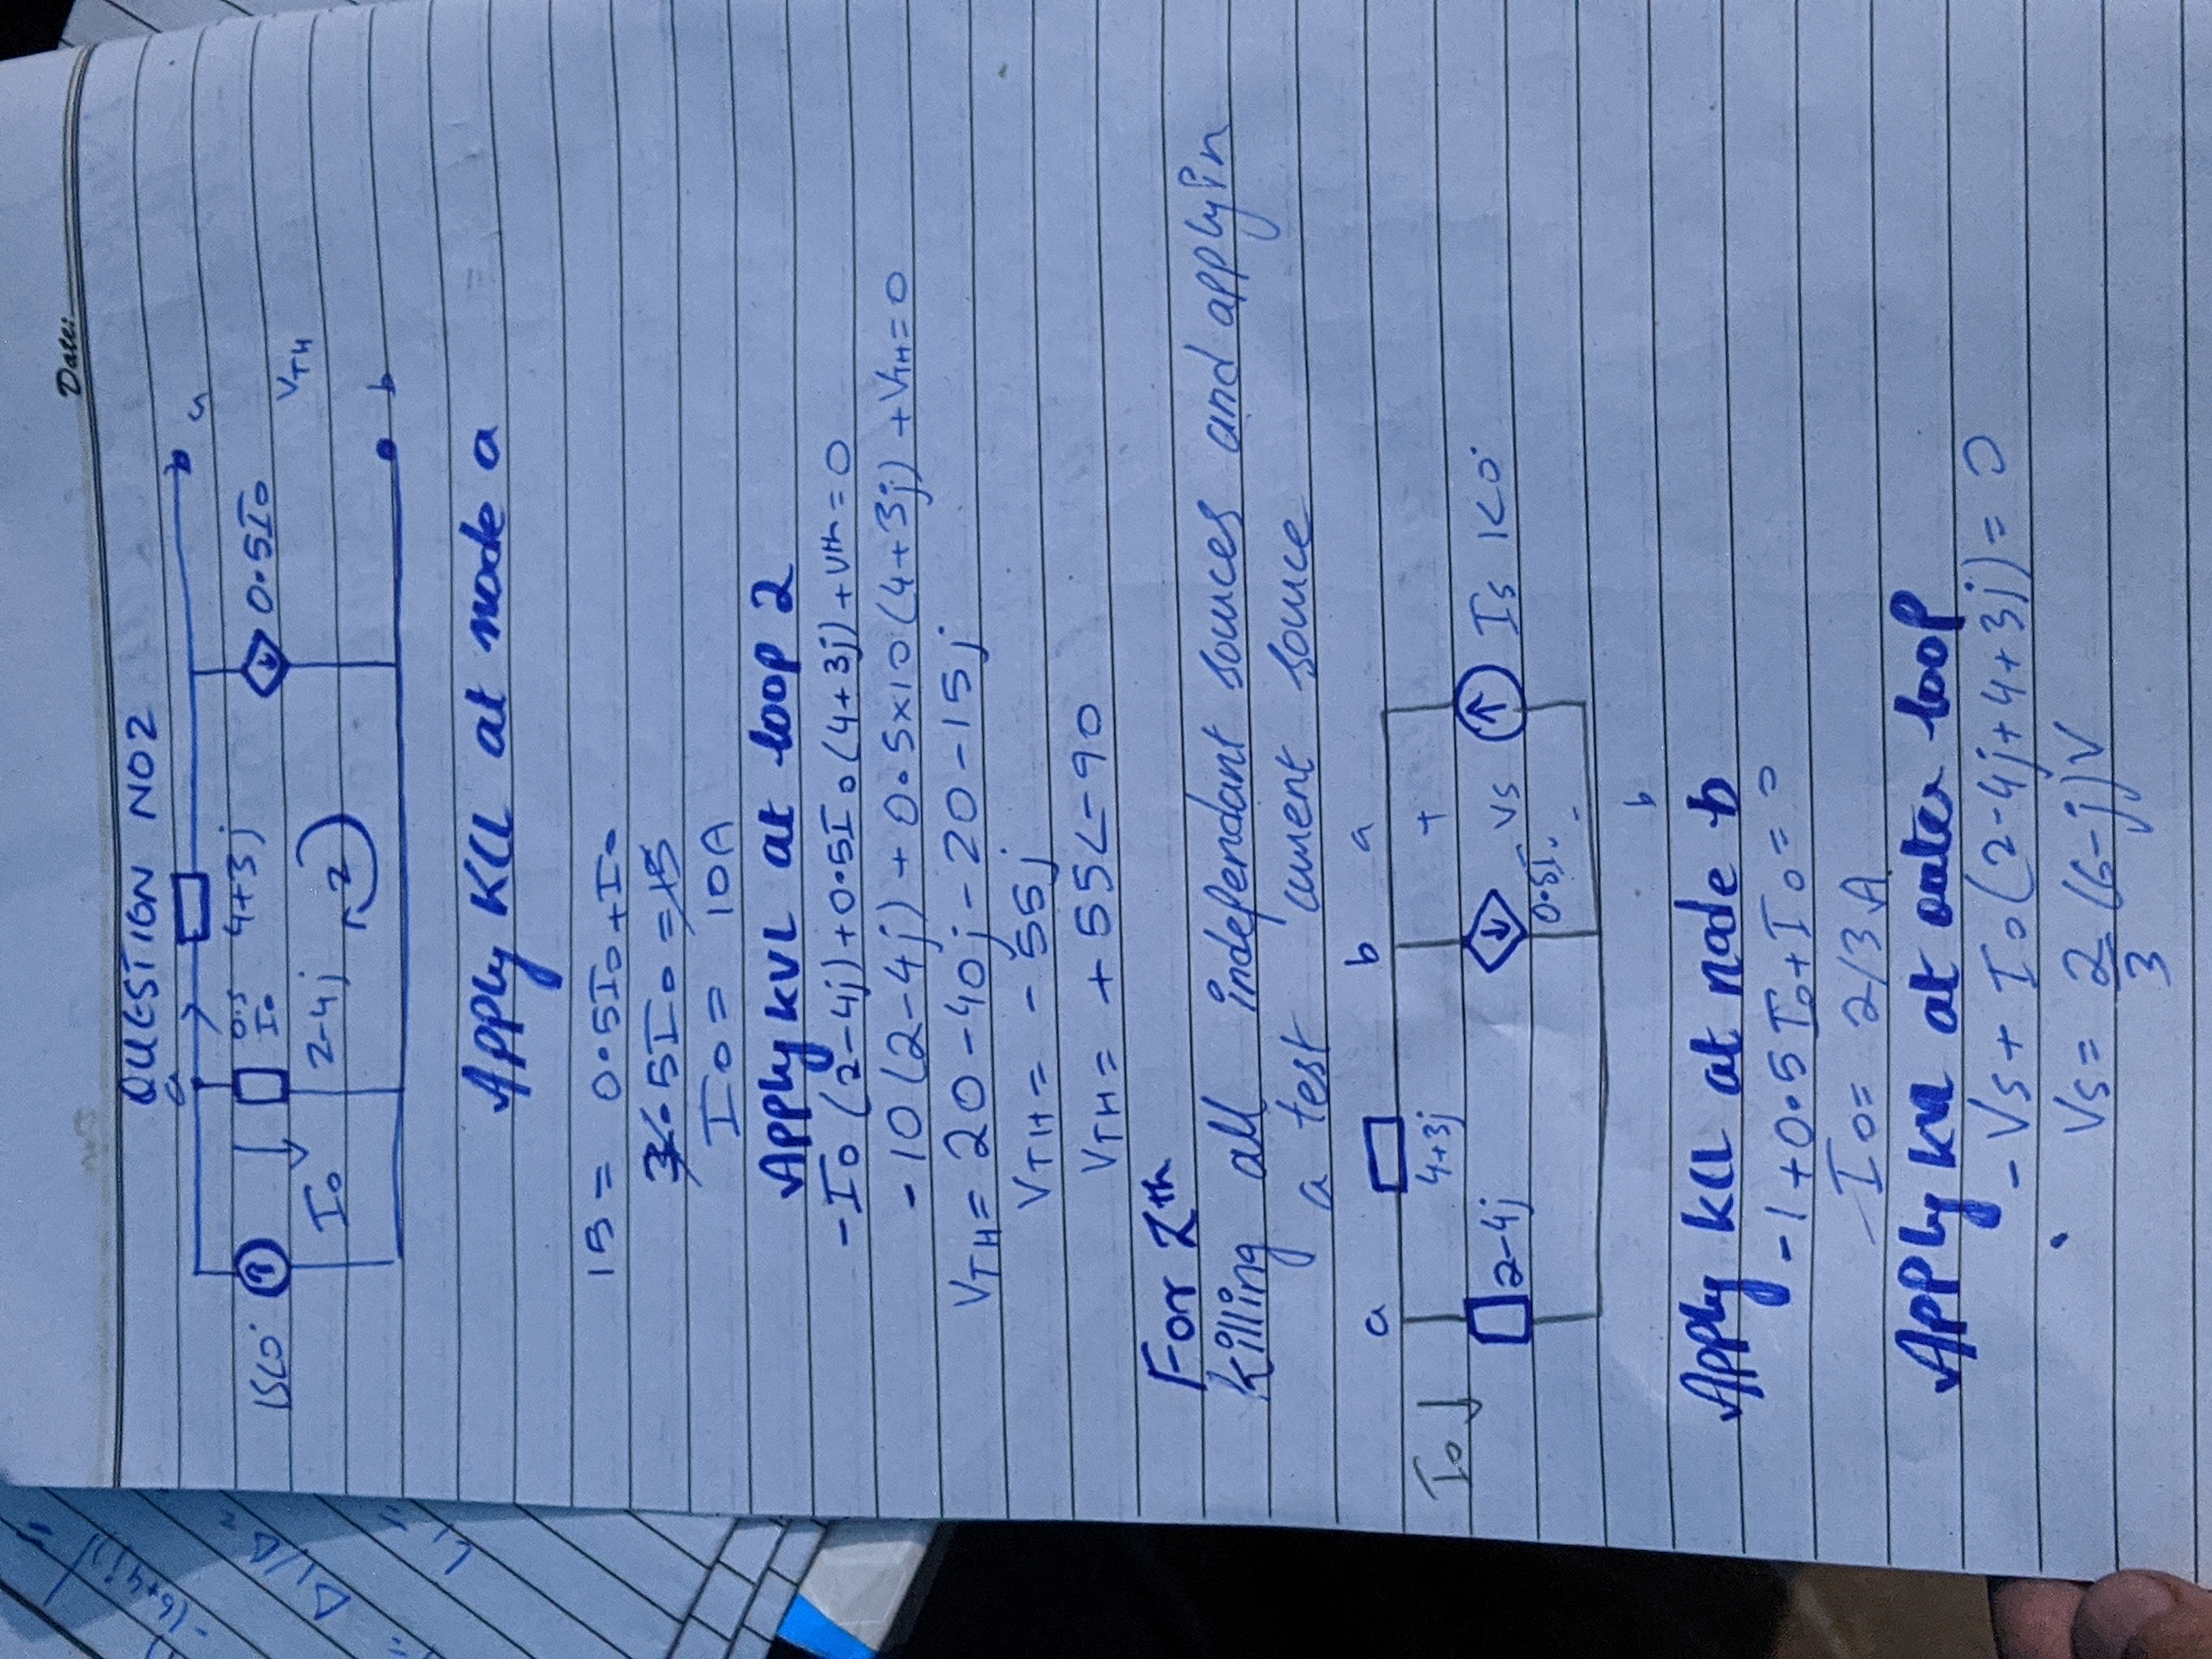 Date:
QUESTION NO2
a
0.5
Io
4+3j
15∠0°
Io
2-4j
2
0.5Io
a
VTH
b
Apply KCL at node a
15 = 0.5Io+Io
.5Io =15
Io = 10A
Apply KVL at loop 2
-Io(2-4j)+0.5Io(4+3j)+Vth=0
-10(2-4j)+0.5x10(4+3j)+VTH=0
VTH= 20-40j-20-15j
VTH= -55j
VTH= +55∠-90
For Zth
killing all independant sources and applyin
a test current source
a
b
a
Io
4+3j
2-4j
+
Vs
-
0.5Io
Is 1<0°
b
Apply KCL at node b
-1+0.5Io+Io=0
Io= 2/3A
Apply KVL at outer loop
-Vs+Io(2-4j+4+3j)=0
Vs= 2/3 (6-j)V
-(6+4j)
Δ1/Δ=